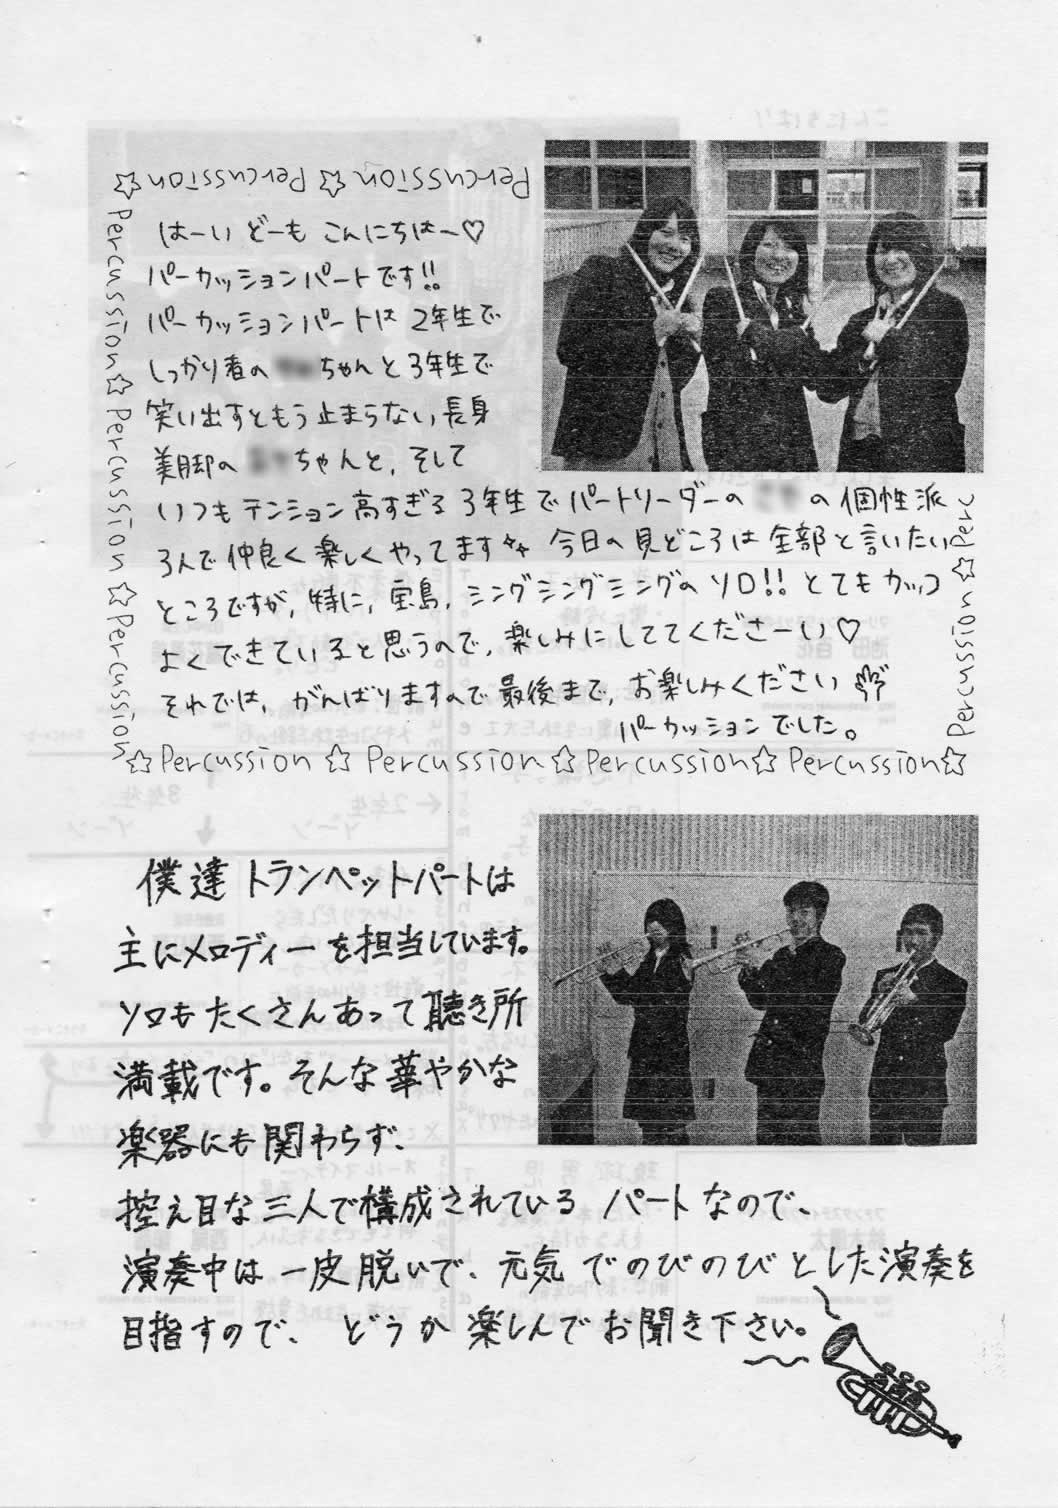 ☆ Percussion ☆ Percussion ☆ Percussion
☆ Percussion ☆ Percussion ☆ Percussion
はーい どーも こんにちはー♡
パーカッションパートです!!
パーカッションパートは 2年生で
しっかり者の ちゃんと 3年生で
笑い出すともう止まらない長身
美脚の ちゃんと、そして
いつもテンション高すぎる 3年生でパートリーダーの の個性派
3人で仲良く楽しくやってます 今日の見どころは全部と言いたい
ところですが、特に、宝島、シングシングシングのソロ!! とてもカッコ
よくできていると思うので、楽しみにしててくださーい♡
それでは、がんばりますので最後まで、お楽しみください
パーカッションでした。
☆ Percussion ☆ Percussion ☆ Percussion ☆ Percussion ☆
Percussion ☆ Perc
僕達トランペットパートは
主にメロディーを担当しています。
ソロもたくさんあって聴き所
満載です。そんな華やかな
楽器にも関わらず、
控え目な三人で構成されている パートなので、
演奏中は一皮脱いで、元気でのびのびとした演奏を
目指すので、どうか楽しんでお聞き下さい。